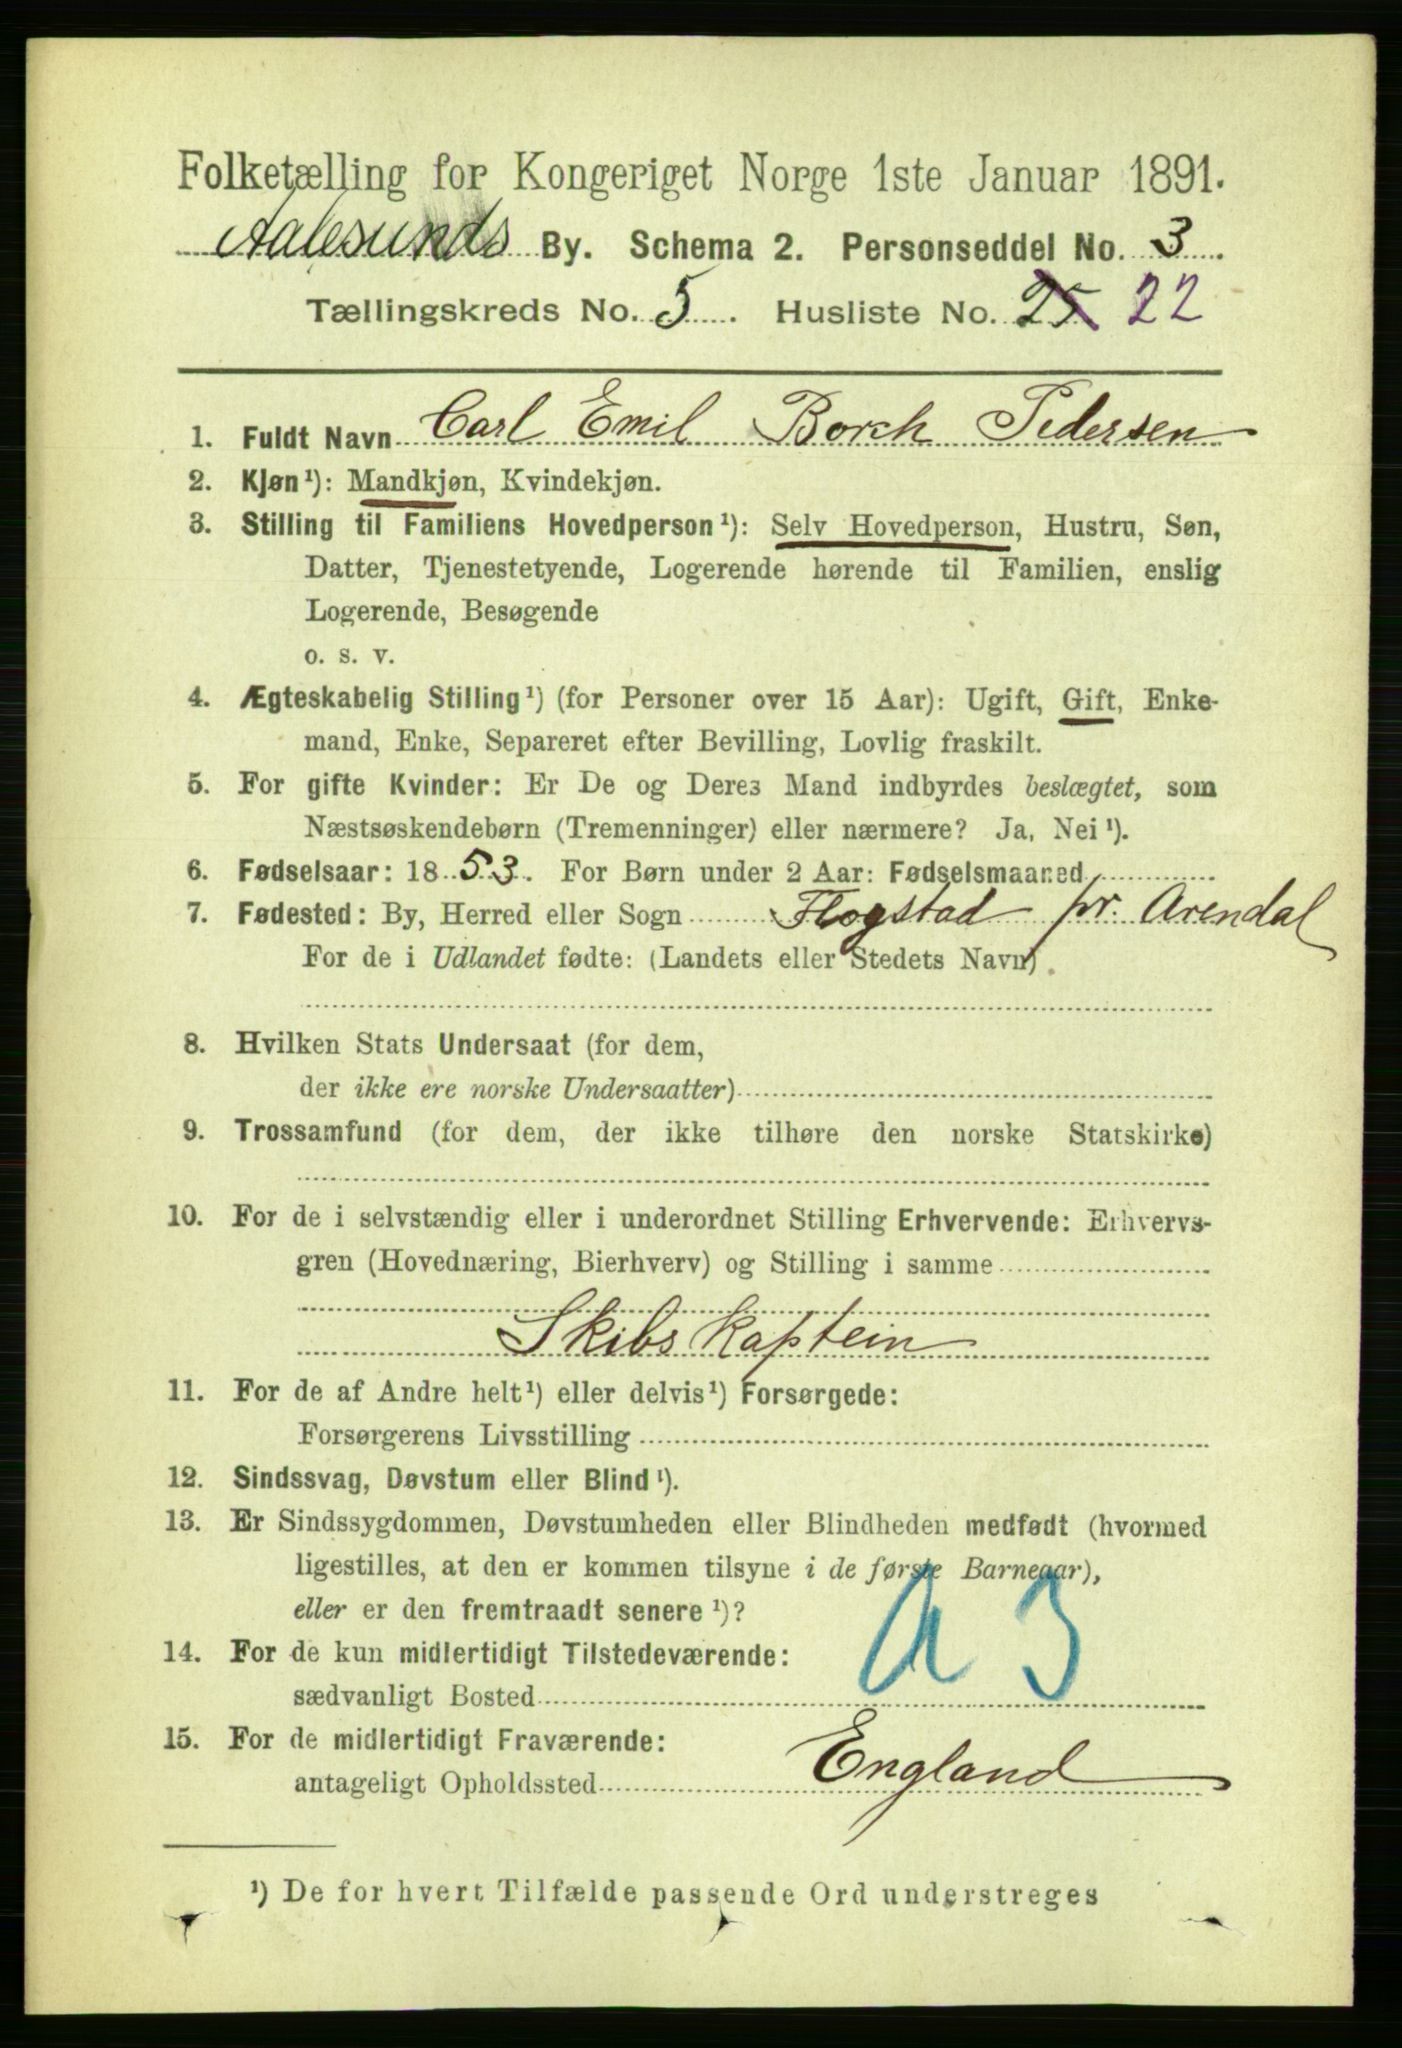 Folketælling for Kongeriget Norge 1ste Januar 1891.
Aalesunds By. Schema 2. Personseddel No. 3.
Tællingskreds No. 5. Husliste No. 25 22
1. Fuldt Navn Carl Emil Borch Pedersen
2. Kjøn¹): Mandkjøn, Kvindekjøn.
3. Stilling til Familiens Hovedperson¹): Selv Hovedperson, Hustru, Søn,
Datter, Tjenestetyende, Logerende hørende til Familien, enslig
Logerende, Besøgende
o. s. v.
4. Ægteskabelig Stilling¹) (for Personer over 15 Aar): Ugift, Gift, Enke-
mand, Enke, Separeret efter Bevilling, Lovlig fraskilt.
5. For gifte Kvinder: Er De og Deres Mand indbyrdes beslægtet, som
Næstsøskendebørn (Tremenninger) eller nærmere? Ja, Nei¹).
6. Fødselsaar: 1853. For Børn under 2 Aar: Fødselsmaaned
7. Fødested: By, Herred eller Sogn Flogstad pr. Arendal
For de i Udlandet fødte: (Landets eller Stedets Navn)
8. Hvilken Stats Undersaat (for dem,
der ikke ere norske Undersaatter)
9. Trossamfund (for dem, der ikke tilhøre den norske Statskirke)
10. For de i selvstændig eller i underordnet Stilling Erhvervende: Erhvervs-
gren (Hovednæring, Bierhverv) og Stilling i samme
Skibskaptein
11. For de af Andre helt¹) eller delvis¹) Forsørgede:
Forsørgerens Livsstilling
12. Sindssvag, Døvstum eller Blind¹).
13. Er Sindssygdommen, Døvstumheden eller Blindheden medfødt (hvormed
ligestilles, at den er kommen tilsyne i de første Barneaar),
eller er den fremtraadt senere¹)?
a 3
14. For de kun midlertidigt Tilstedeværende:
sædvanligt Bosted
15. For de midlertidigt Fraværende:
antageligt Opholdssted England
¹) De for hvert Tilfælde passende Ord understreges